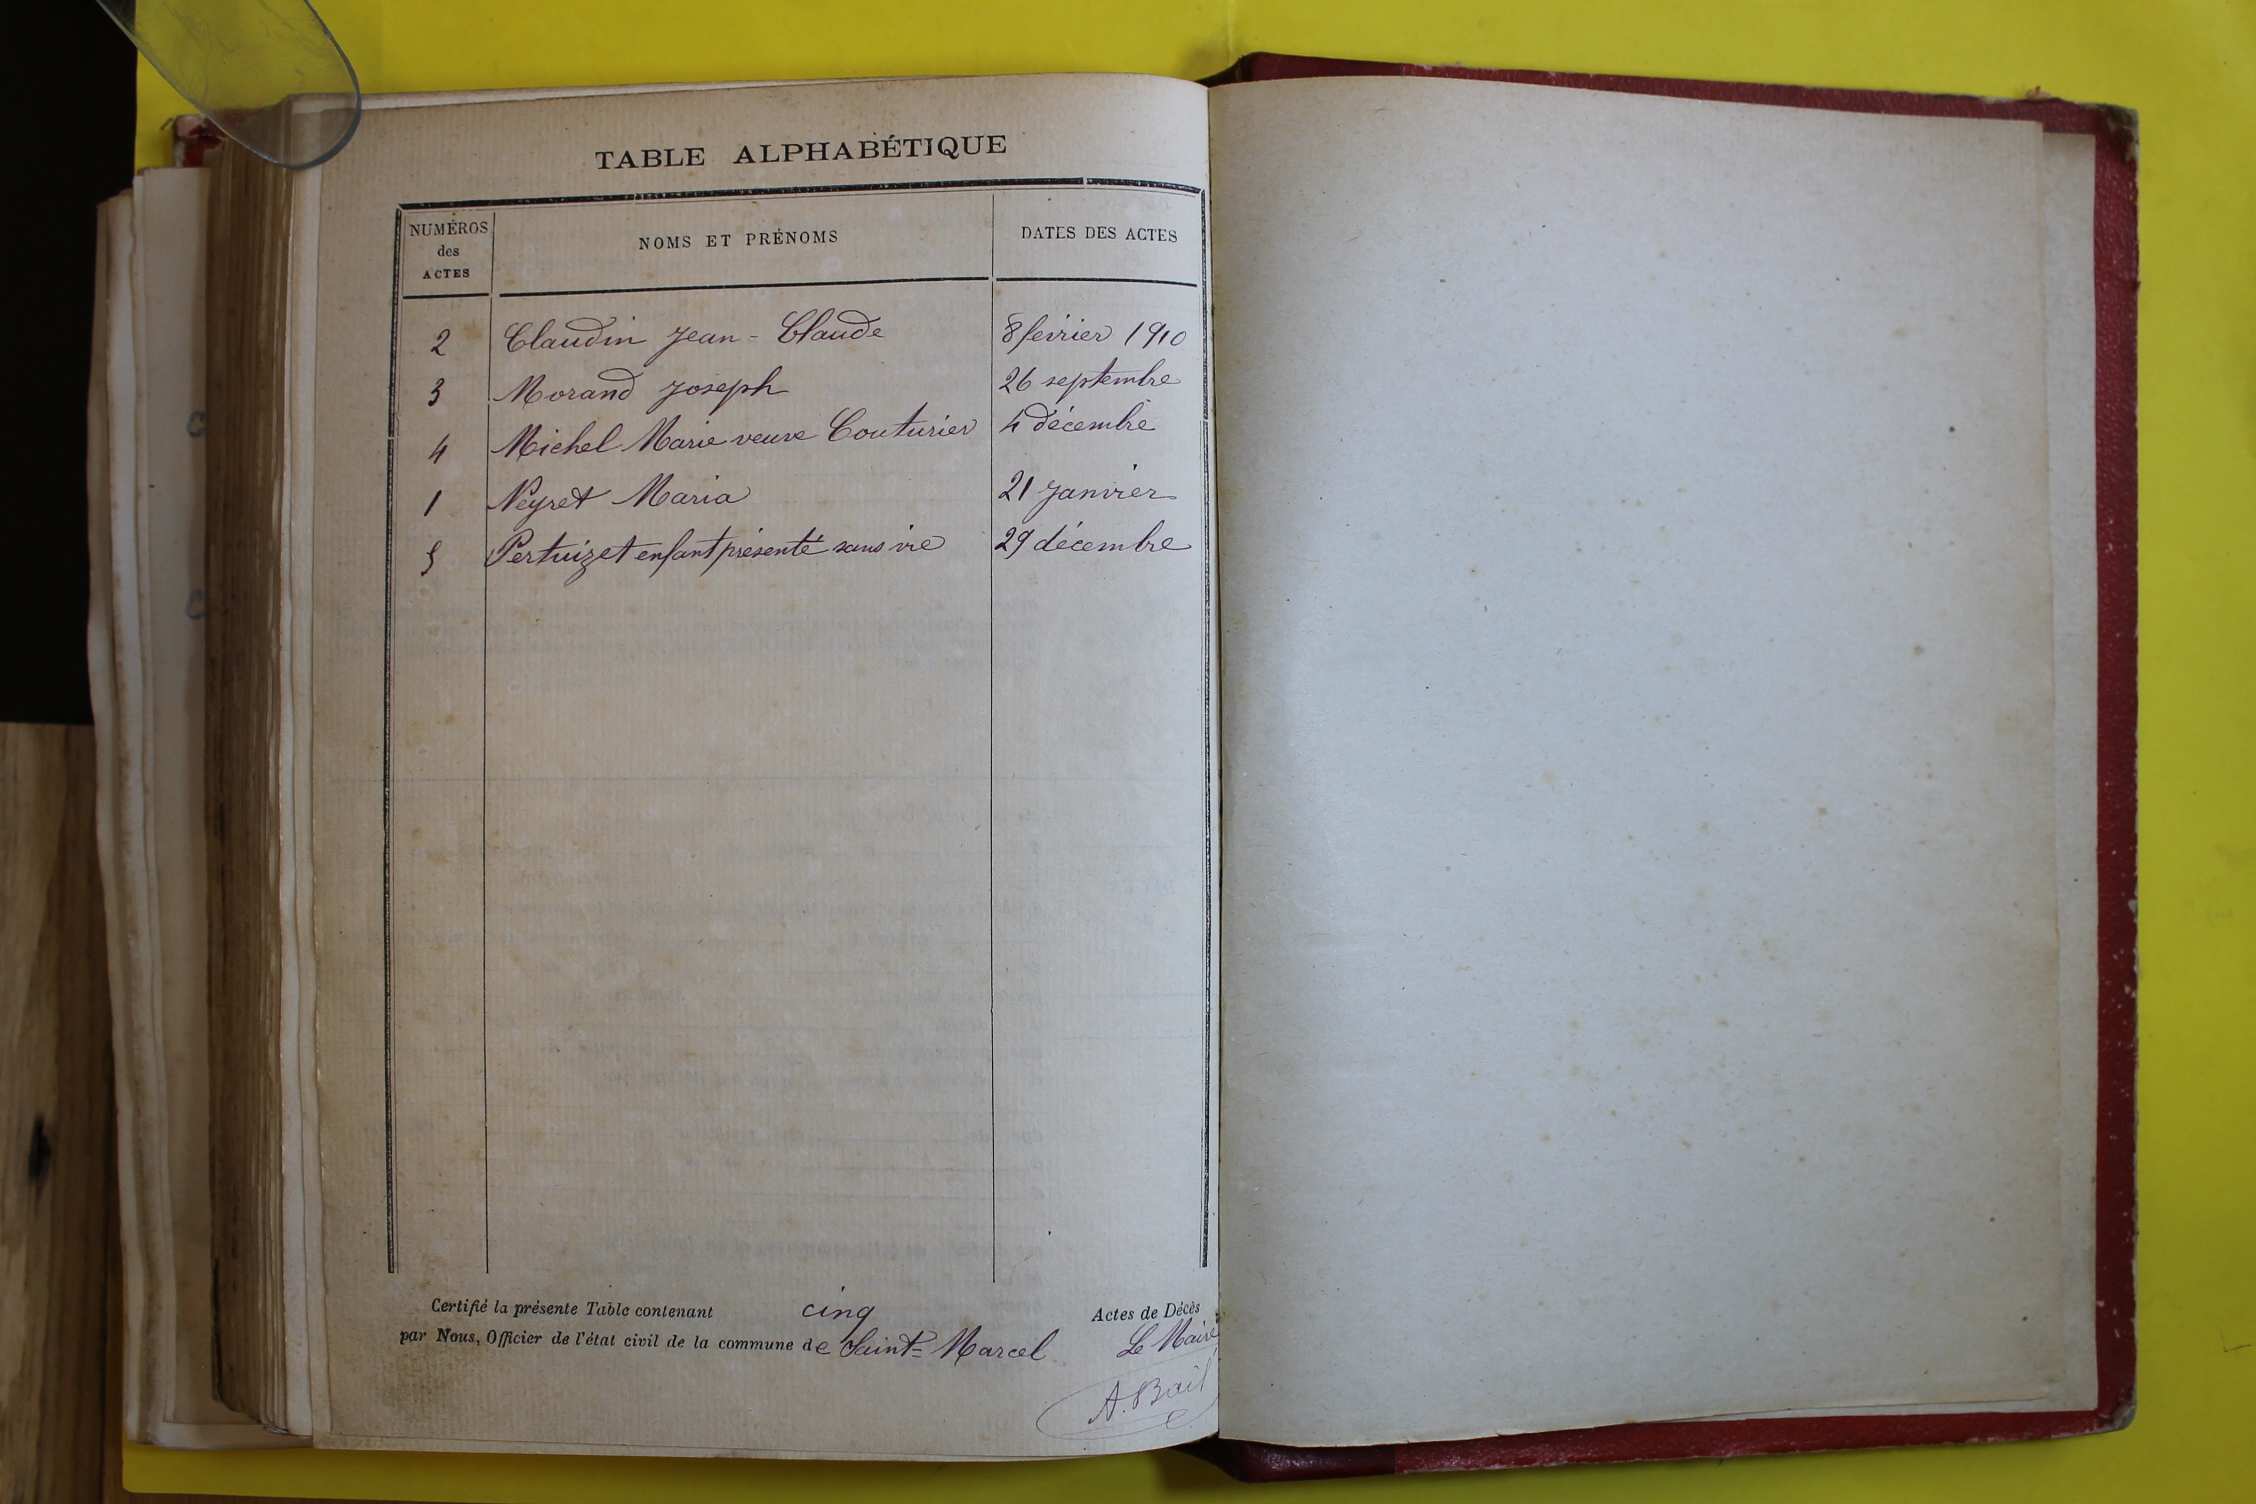 TABLE ALPHABÉTIQUE
NUMÉROS des ACTES NOMS ET PRÉNOMS DATES DES ACTES
2 Claudin Jean-Claude 8 février 1910
3 Morand Joseph 26 septembre
4 Michel Marie veuve Couturier 4 décembre
1 Neyret Maria 21 Janvier
5 Pertuizet enfant présenté sans vie 29 décembre
Certifié la présente Table contenant cinq Actes de Décès
par Nous, Officier de l'état civil de la commune de Saint-Marcel Le Maire
A. Bail